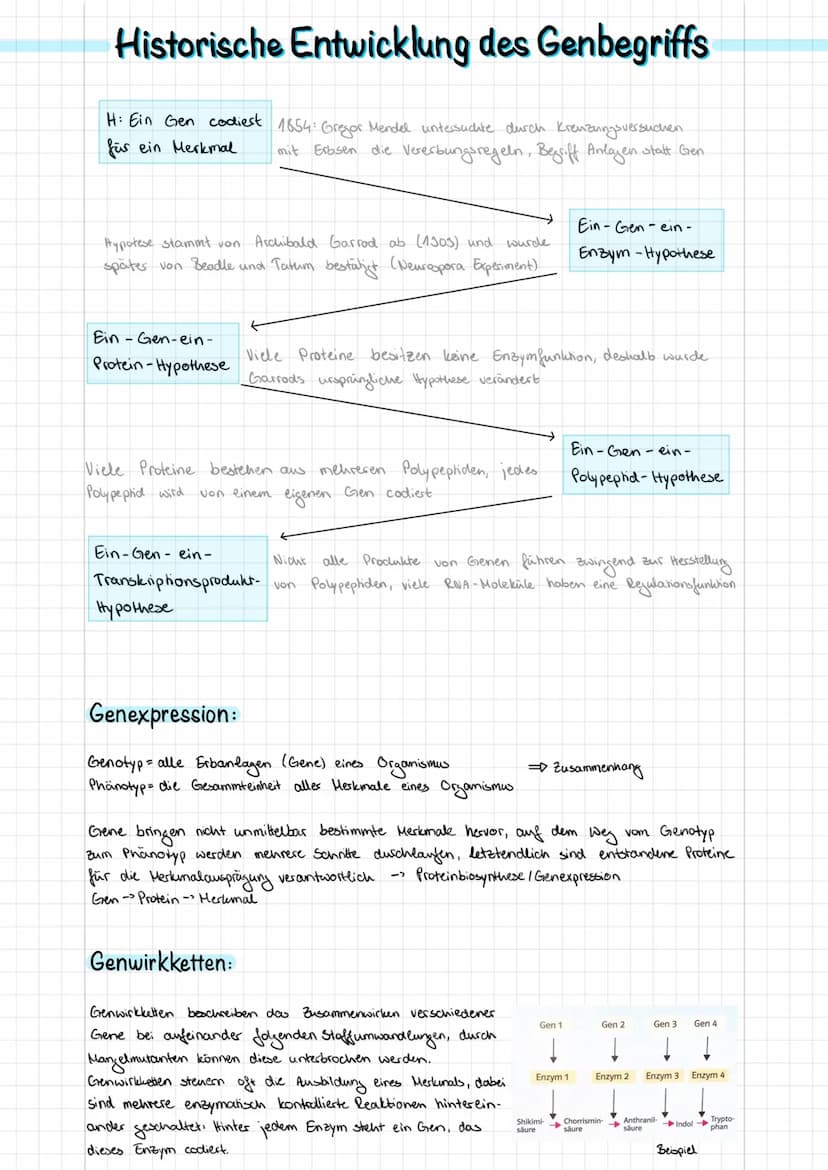 Historische Entwicklung des Genbegriffs
H: Ein Gen codiert
für ein Merkmal
1854: Gregor Mendel untersuchte durch Kreuzungsversuchen
mit Erbsen die Vererbungsregeln, Begriff Anlagen statt Gen
Ein-Gen-ein-
Enzym-Hypothese
Hypotese stammt von Archibald Garrod ab (1909) und wurde
später von Beadle und Tatum bestätigt (Neurospora Experiment)
Ein-Gen-ein-
Protein-Hypothese
Viele Proteine besitzen keine Enzymfunktion, deshalb wurde
Garrods ursprüngliche Hypothese verändert
Ein-Gen-ein-
Polypeptid-Hypothese
Viele Proteine bestehen aus mehreren Polypeptiden, jedes
Polypeptid wird von einem eigenen Gen codiert
Ein-Gen-ein-
Transkriptionsprodukt-
Hypothese
Nicht alle Produkte von Genen führen zwingend zur Herstellung
von Polypeptiden, viele RNA-Moleküle haben eine Regulationsfunktion
Genexpression:
Genotyp = alle Erbanlagen (Gene) eines Organismus
Phänotyp = die Gesammteinheit aller Merkmale eines Organismus
⇒ Zusammenhang
Gene bringen nicht unmittelbar bestimmte Merkmale hervor, auf dem Weg vom Genotyp
zum Phänotyp werden mehrere Schritte duschlaufen, letztendlich sind entstandene Proteine
für die Merkmalausprägung verantwortlich -> Proteinbiosynthese / Genexpression
Gen -> Protein -> Merkmal
Genwirkketten:
Genwirkketten beschreiben das Zusammenwirken verschiedener
Gene bei aufeinander folgenden Stoffumwandlungen, durch
Mangelmutanten können diese unterbrochen werden.
Genwirkketten steuern oft die Ausbildung eines Merkmals, dabei
sind mehrere enzymatisch kontrollierte Reaktionen hinterein-
ander geschaltet. Hinter jedem Enzym steht ein Gen, das
dieses Enzym codiert.
Gen 1 Gen 2 Gen 3 Gen 4
Enzym 1 Enzym 2 Enzym 3 Enzym 4
Shikimi-
säure
Chorrismin-
säure
Anthranil-
säure
Indol
Trypto-
phan
Beispiel